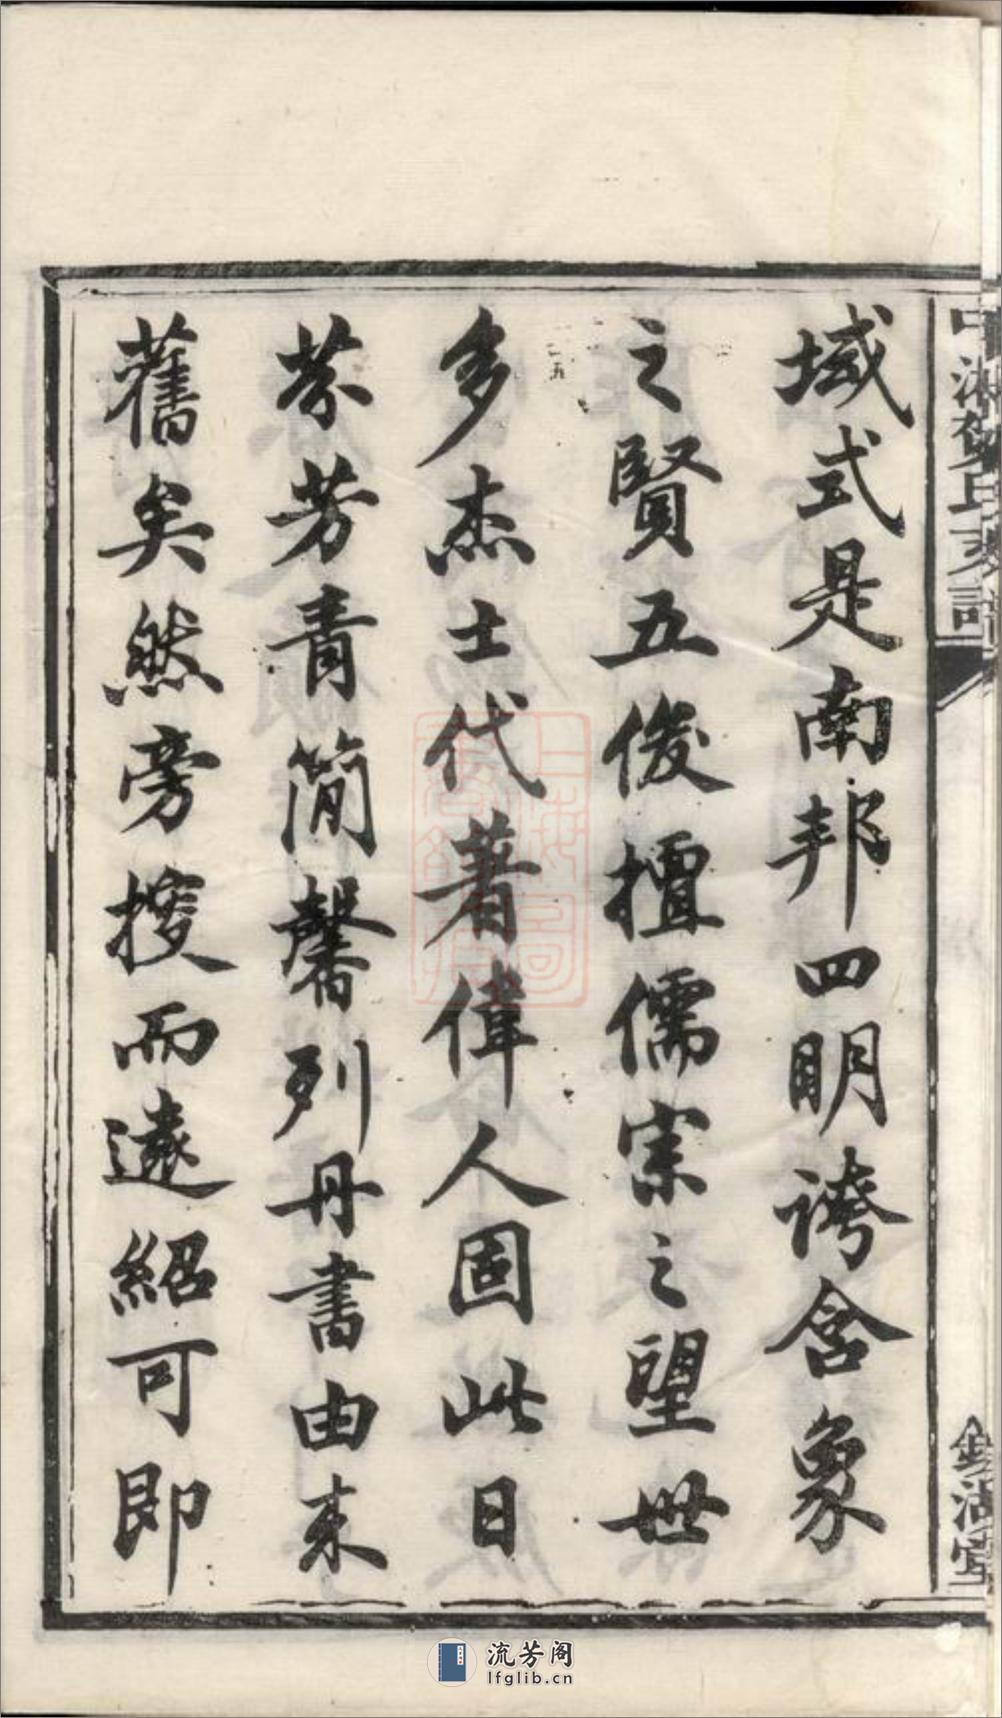 中湘賀氏支譜
鑑湖堂
域式是南邦四明誇含象
之賢五俊擅儒宗之望世
多杰士代著偉人固此日
芬芳青簡馨列丹書由来
舊矣然旁搜而遠紹可即
流芳阁
lfglib.cn